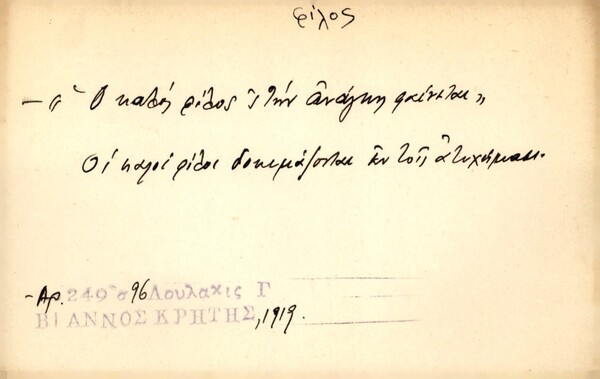 φίλος
— „ Ὁ καλός φίλος 'ς τὴν ἀνάγκη φαίνεται „
Οἱ καλοί φίλοι δοκιμάζονται ἐν τοῖς ἀτυχήμασι.
- Αρ. 249 σ 96 Λουλακις Γ
ΒΙΑΝΝΟΣ ΚΡΗΤΗΣ, 1919.